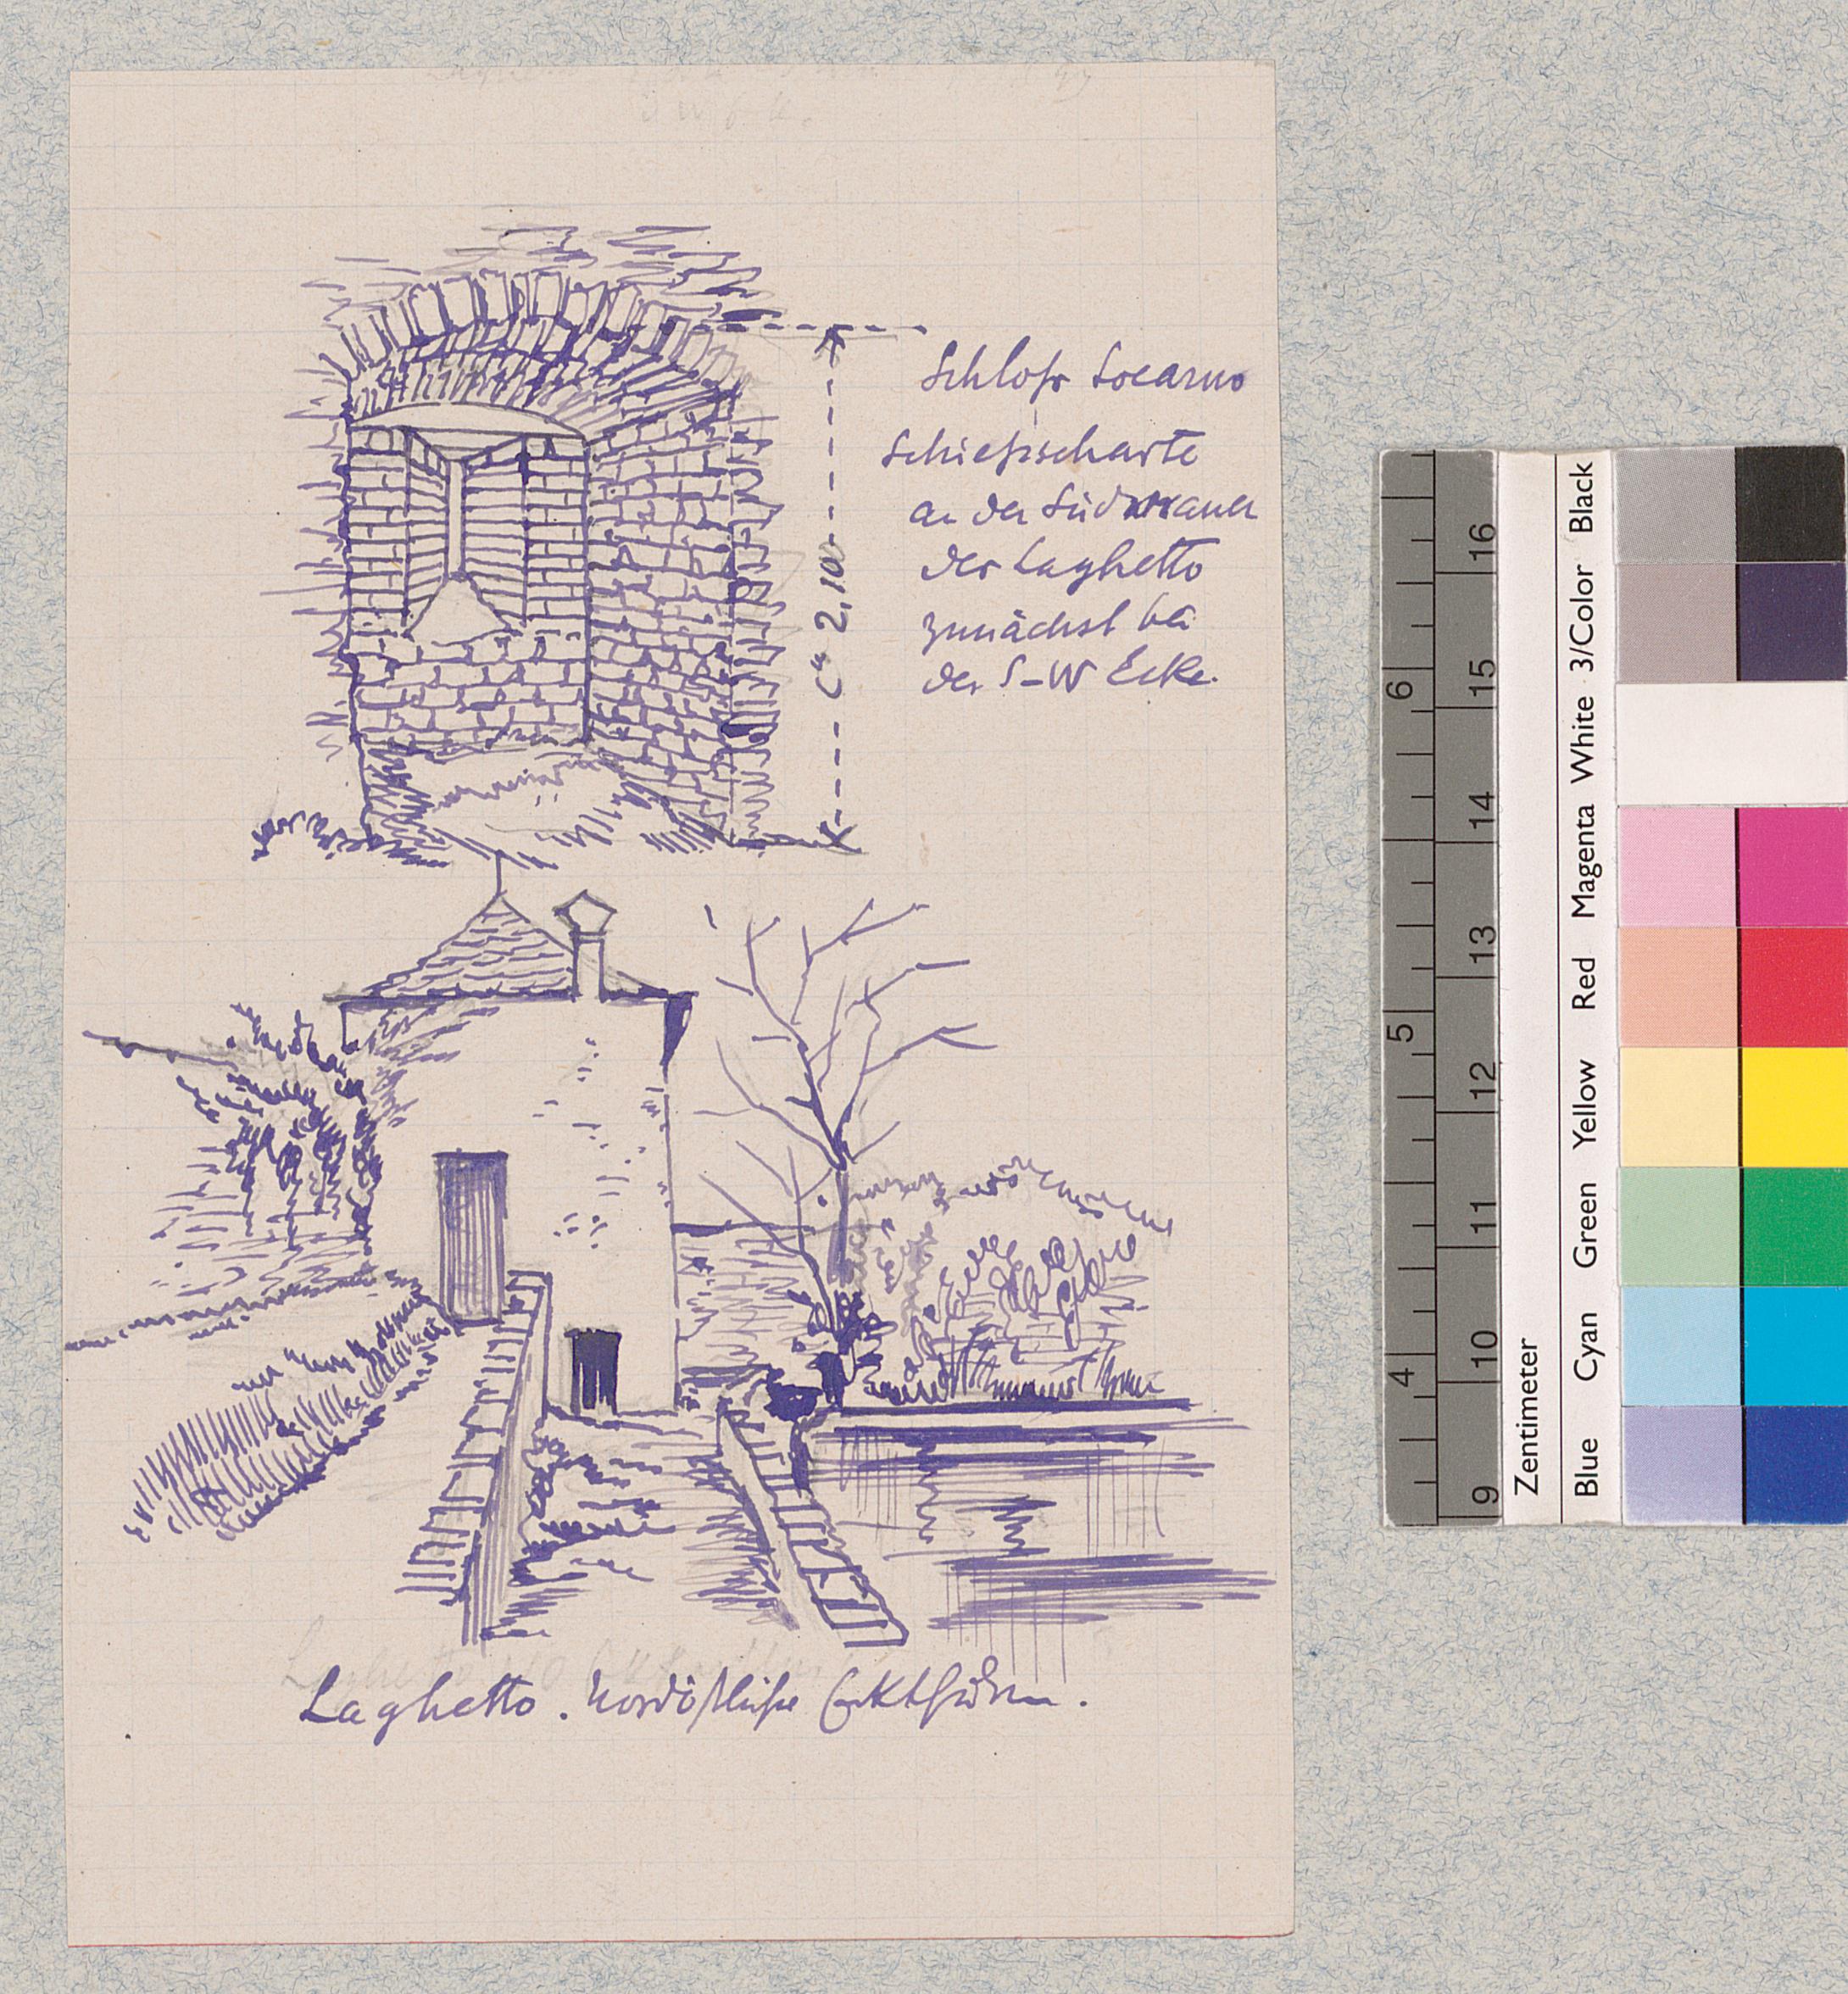 Schloß Locarno
Schießscharte
an der Südmauer
des Laghetto
zunächst bei
der S-W Ecke.
ca 2,10
Laghetto. Nordöstliche
Black
3/Color
White
Magenta
Red
Yellow
Green
Cyan
Blue
Zentimeter
16
15
14
13
12
11
10
9
6
5
4